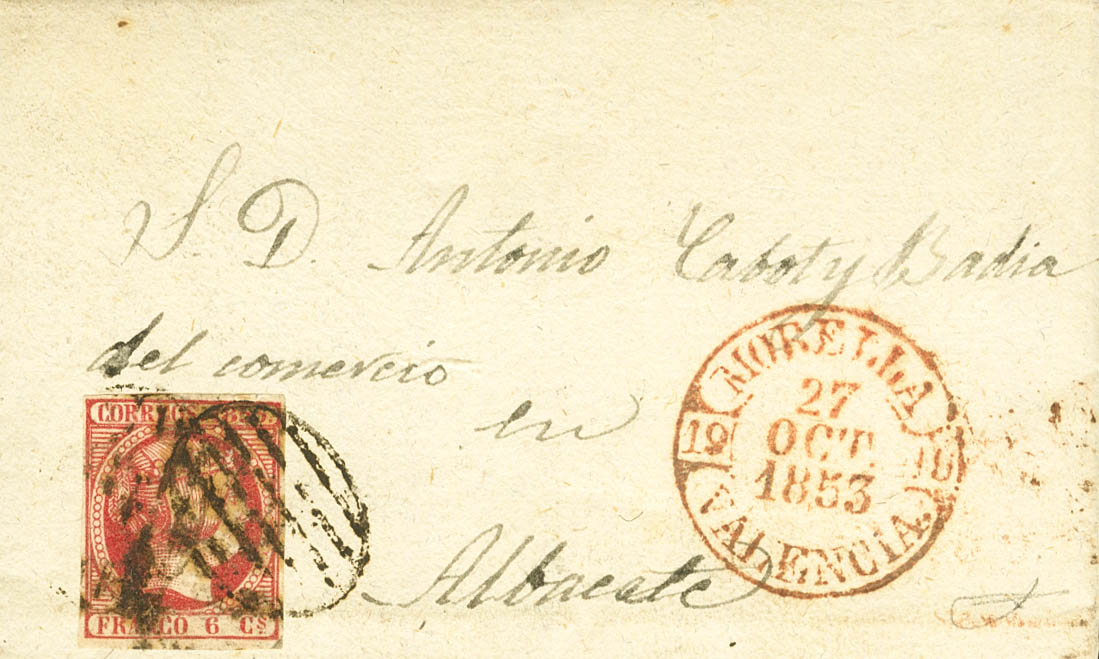 S. D. Antonio Cabot y Badia
del comercio
en
Albacete
CORREOS 1853
FRANCO 6 Cs
MORELLA
27
OCT
1853
19 19
VALENCIA.